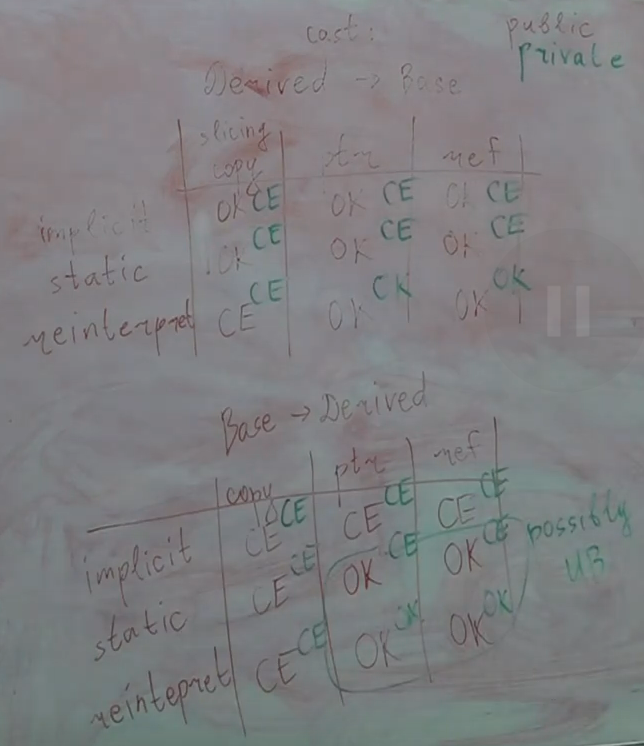 cast: public
private
Derived → Base
slicing
copy ptr ref
implicit OK CE OK CE OK CE
static OK CE OK CE OK CE
reinterpret CE CE OK CK OK OK
Base → Derived
copy ptr ref
implicit CE CE CE CE CE CE
static CE CE OK CE OK CE possibly
UB
reintepret CE CE OK OK OK OK